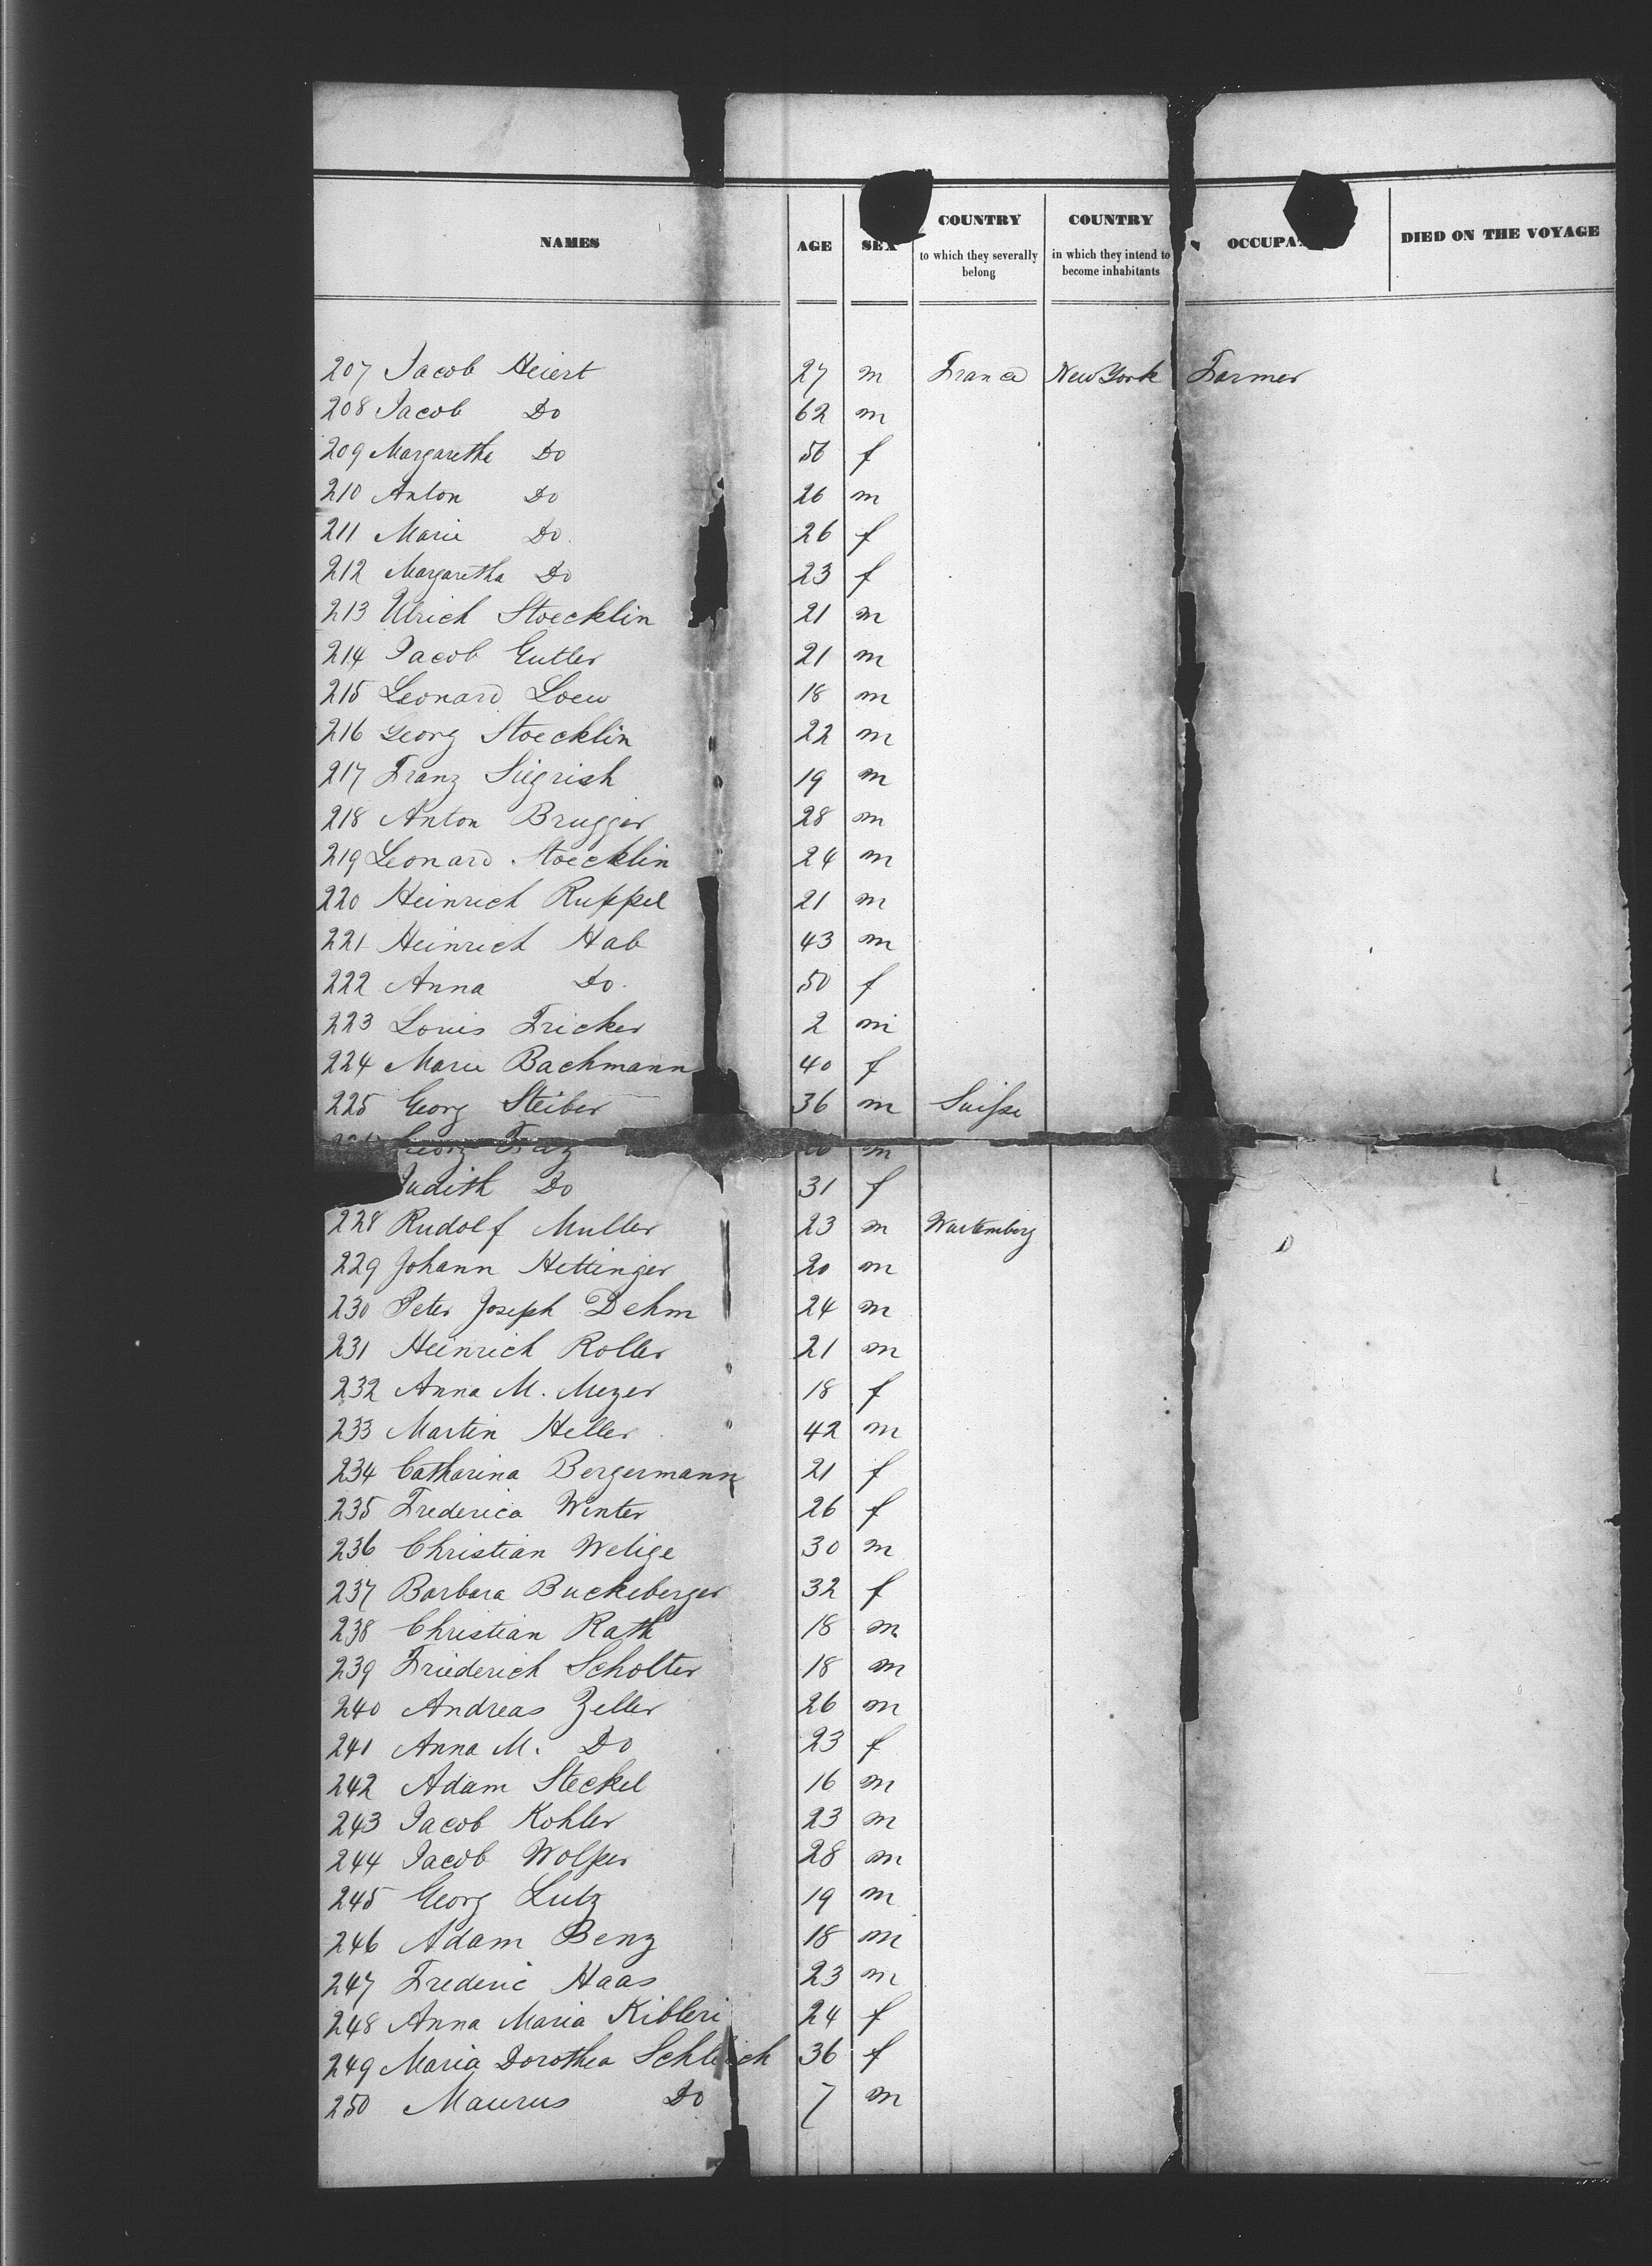 NAMES AGE SEX COUNTRY to which they severally belong COUNTRY in which they intend to become inhabitants OCCUPA DIED ON THE VOYAGE
207 Jacob Heiert 27 m France New York Farmer
208 Jacob Do 62 m
209 Margaretha Do 56 f
210 Anton Do 26 m
211 Marie Do 26 f
212 Margaretha Do 23 f
213 Ulrich Stoecklin 21 m
214 Jacob Gutler 21 m
215 Leonard Loew 18 m
216 Georg Stoecklin 22 m
217 Franz Siegrish 19 m
218 Anton Brugger 28 m
219 Leonard Stoecklin 24 m
220 Heinrich Ruppel 21 m
221 Heinrich Hab 43 m
222 Anna Do 50 f
223 Louis Fricker 2 m
224 Marie Bachmann 40 f
225 Georg Steiber 36 m Suisse
Georg m
Judith Do 31 f
228 Rudolf Muller 23 m Wurtemberg
229 Johann Hettinger 20 m
230 Peter Joseph Dehm 24 m
231 Heinrich Roller 21 m
232 Anna M. Mezer 18 f
233 Martin Heller 42 m
234 Catharina Bergermann 21 f
235 Frederica Winter 26 f
236 Christian Welige 30 m
237 Barbara Buckeberger 32 f
238 Christian Rath 18 m
239 Friederich Scholter 18 m
240 Andreas Zeller 26 m
241 Anna M. Do 23 f
242 Adam Steckel 16 m
243 Jacob Kohler 23 m
244 Jacob Wolper 28 m
245 Georg Lutz 19 m
246 Adam Benz 18 m
247 Frederic Haas 23 m
248 Anna Maria Kibleri 24 f
249 Maria Dorothea 36 f
250 Maurus Do 7 m